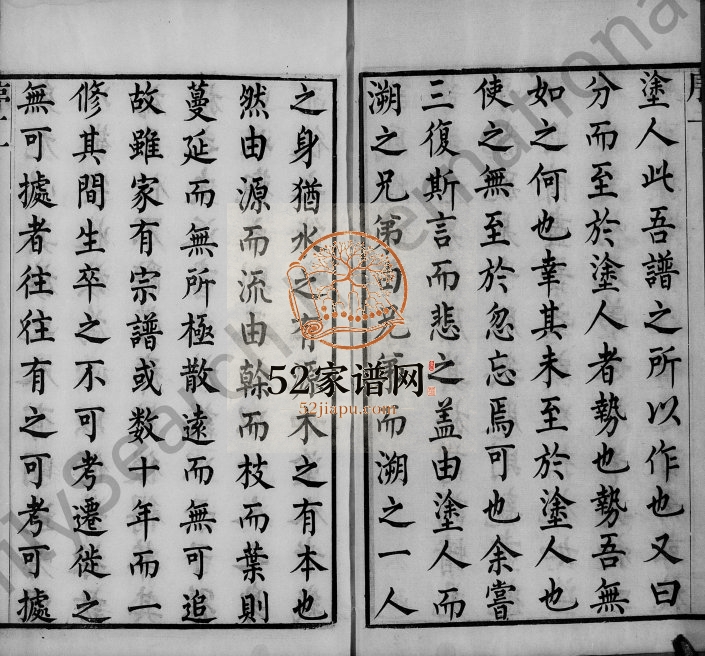 塗人此吾譜之所以作也又曰
分而至於塗人者勢也勢吾無
如之何也幸其未至於塗人也
使之無至於忽忘焉可也余嘗
三復斯言而悲之蓋由塗人而
溯之兄弟由兄弟而溯之一人
之身猶水之有源木之有本也
然由源而流由幹而枝而葉則
蔓延而無所極散遠而無可追
故雖家有宗譜或数十年而一
修其間生卒之不可考遷徙之
無可據者往往有之可考可據
52家谱网
52jiapu.com
FamilySearch International